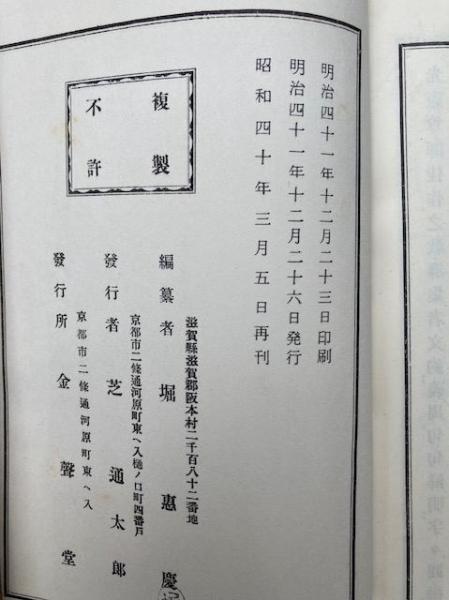 明治四十一年十二月二十三日印刷
明治四十一年十二月二十六日発行
昭和四十年三月五日再刊
複製
不許
滋賀縣滋賀郡阪本村二千百八十二番地
編纂者 堀 惠慶
京都市二條通河原町東ヘ入樋ノ口町四番戸
發行者 芝 通太郎
京都市二條通河原町東ヘ入
發行所 金聲堂